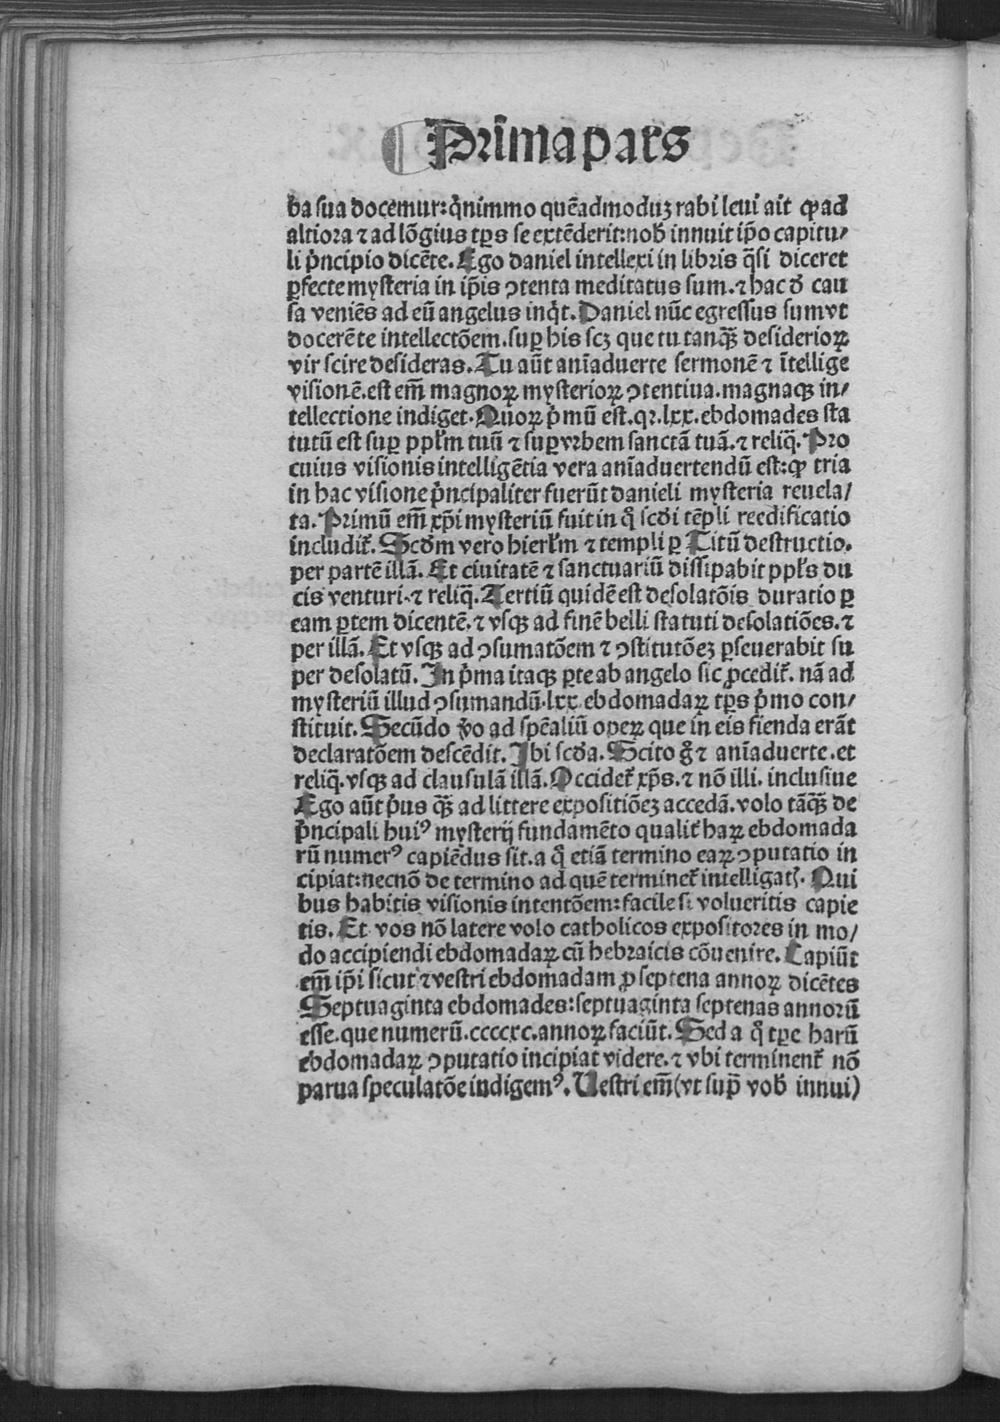 ¶ Prīma pars
ba sua docemur: q̄nimmo quēadmoduꝫ rabi leui ait ꝙ ad
altiora ⁊ ad lōgius tp̄s se extēderit: nob̄ innuit ip̄o capitu/
li p̄ncipio dicēte. Ego daniel intellexi in libris q̄si diceret
ꝑfecte mysteria in ip̄is ↄtenta meditatus sum. ⁊ hac d̄ cau
sa veniēs ad eū angelus inq̇t. Daniel nūc egressus sum vt
docerē te intellectōem. suꝑ his scꝫ que tu tanq̄ꝫ desiderioꝝ
vir scire desideras. Tu aūt anīaduerte sermonē ⁊ ītellige
visionē. est em̄ magnoꝝ mysterioꝝ ↄtentiua. magnaqꝫ in/
tellectione indiget. Quoꝝ p̄mū est. qꝛ .lxx. ebdomades sta
tutū est suꝑ ppl̄m tuū ⁊ suꝑ vrbem sanctā tuā. ⁊ reliq̄. Pro
cuius visionis intelligētia vera anīaduertendū est: ꝙ tria
in hac visione p̄ncipaliter fuerūt danieli mysteria reuela/
ta. Primū em̄ xp̄i mysteriū fuit in q̄ scd̄i tēpli reedificatio
includit̄. Scd̄m vero hierl̄m ⁊ templi ꝑ Titū destructio.
per partē illā. Et ciuitatē ⁊ sanctuariū dissipabit ppl̄s du
cis venturi. ⁊ reliq̄. Tertiū quidē est desolatōis duratio ꝑ
eam ꝑtem dicentē. ⁊ vsqꝫ ad finē belli statuti desolatiōes. ⁊
per illā. Et vsqꝫ ad ↄsumatōem ⁊ ↄstitutōeꝫ ꝑseuerabit su
per desolatū. In p̄ma itaqꝫ ꝑte ab angelo sic ꝓcedit̄. nā ad
mysteriū illud ↄsumandū .lxx. ebdomadaꝝ tp̄s p̄mo con/
stituit. Secūdo v̄o ad spēaliū opeꝝ que in eis fienda erāt
declaratōem descēdit. Ibi scd̄a. Scito g̊ ⁊ anīaduerte. et
reliq̄. vsqꝫ ad clausulā illā. Occidet̄ xp̄s. ⁊ nō illi. inclusiue
Ego aūt p̄us q̄ꝫ ad littere expositiōeꝫ accedā. volo tāq̄ꝫ de
p̄ncipali huiꝰ mysterij fundamēto qualit̄ haꝝ ebdomada
rū numerꝰ capiēdus sit. a q̄ etiā termino eaꝝ ↄputatio in
cipiat: necnō de termino ad quē terminet̄ intelligat̄. Qui
bus habitis visionis intentōem: facile si volueritis capie
tis. Et vos nō latere volo catholicos expositores in mo/
do accipiendi ebdomadaꝝ cū hebraicis cōuenire. Capiūt
em̄ ip̄i sicut ⁊ vestri ebdomadam ꝓ septena annoꝝ dicētes
Septuaginta ebdomades: septuaginta septenas annorū
esse. que numerū .ccccxc. annoꝝ faciūt. Sed a q̄ tꝑe harū
ebdomadaꝝ ↄputatio incipiat videre. ⁊ vbi terminent̄ nō
parua speculatōe indigemꝰ. Uestri em̄ (vt sup̄ vob̄ innui)